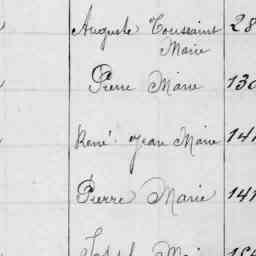 Auguste Toussaint 28
Marie
Pierre Marie 130
René Jean Marie 141
Pierre Marie 141